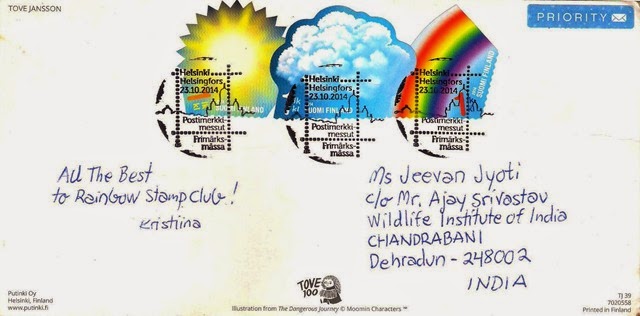 TOVE JANSSON
PRIORITY
SUOMI FINLAND
SUOMI FINLAND
SUOMI FINLAND
Helsinki
Helsingfors
23.10.2014
Postimerkki-
messut
Frimärks-
mässa
Helsinki
Helsingfors
23.10.2014
Postimerkki-
messut
Frimärks-
mässa
Helsinki
Helsingfors
23.10.2014
Postimerkki-
messut
Frimärks-
mässa
All The Best
to Rainbow Stamp Club!
Kristiina
Ms Jeevan Jyoti
c/o Mr. Ajay Srivastav
Wildlife Institute of India
CHANDRABANI
Dehradun - 248002
INDIA
Putinki Oy
Helsinki, Finland
www.putinki.fi
TOVE
100
Illustration from The Dangerous Journey © Moomin Characters ™
TJ 39
7020558
Printed in Finland